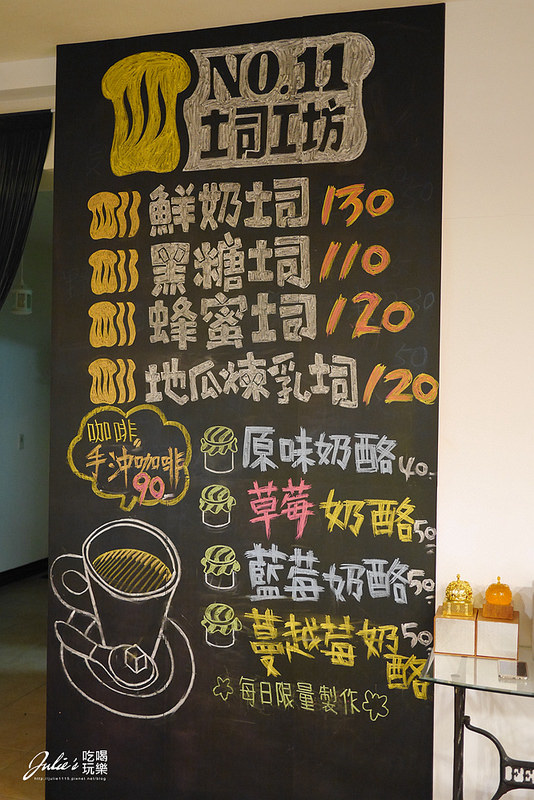 NO.11
土司工坊
鮮奶土司 130
黑糖土司 110
蜂蜜土司 120
地瓜煉乳土司 120
咖啡
手沖咖啡
90
原味奶酪 40
草莓奶酪 50
藍莓奶酪 50
蔓越莓奶酪 50
每日限量製作
Julie's 吃喝玩樂
http://julie1115.pixnet.net/blog